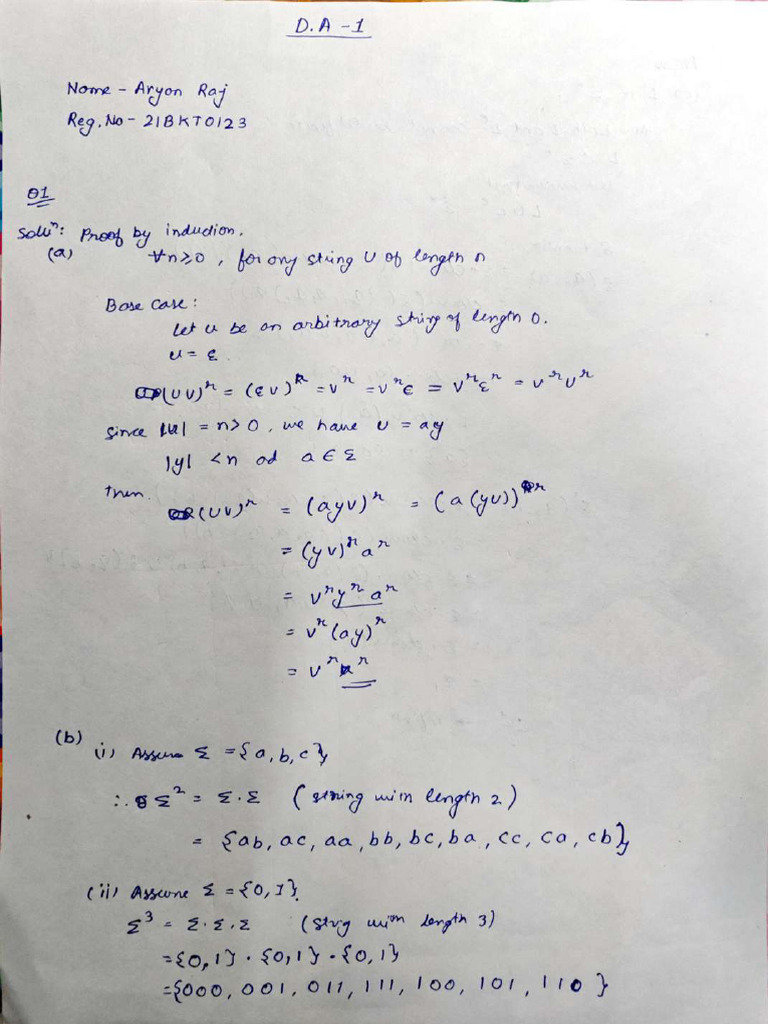 D.A -1
Name - Aryon Raj
Reg. No - 21BKT0123
Q1
Soluⁿ: Proof by induction.
(a) ∀n≥0, for any string U of length n
Base case:
Let u be an arbitrary string of length 0.
u = ε
(UV)^r = (εV)^R = V^r = V^r ε = V^r ε^r = V^r U^r
since |u| = n > 0, we have U = ay
|y| < n ad a ∈ Σ
then.
(UV)^r = (ayv)^r = (a(yv))^r
= (yv)^r a^r
= v^r y^r a^r
= v^r (ay)^r
= v^r u^r
(b)
(i) Assume Σ = {a, b, c},
∴ Σ² = Σ.Σ (string with length 2)
= {ab, ac, aa, bb, bc, ba, cc, ca, cb},
(ii) Assume Σ = {0, 1}.
Σ³ = Σ.Σ.Σ (strig with length 3)
= {0, 1} . {0, 1} . {0, 1}
= {000, 001, 011, 111, 100, 101, 110 }